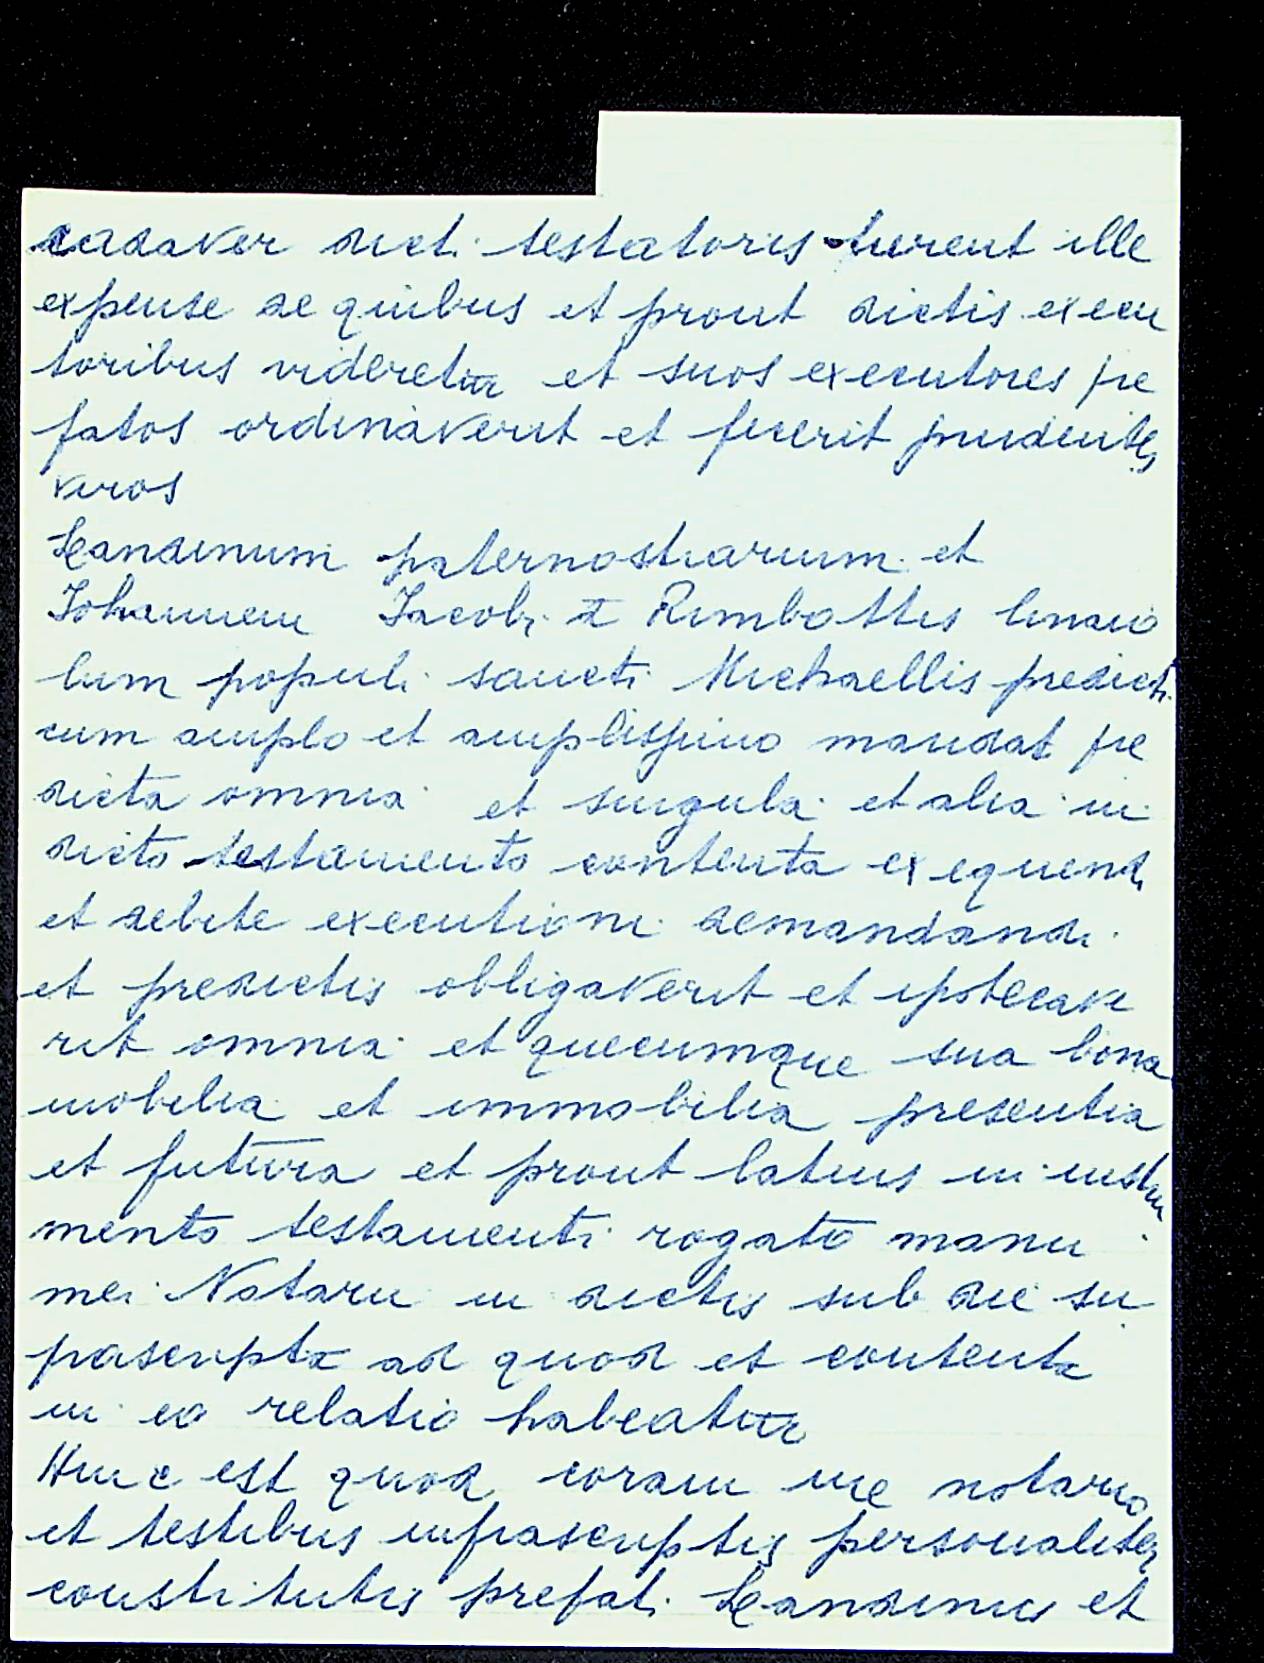 cadaver dict. testatoris fierent ille
expense de quibus et prout dictis execu
toribus videretur et suos executores pre
fatos ordinaverit et fecerit prudentes
viros
Landinum paternostrarium et
Johannem Jacobi Rimbottis linaio
lum populi sancti Michaellis predicti
cum amplo et amplissimo mandat pre
dicta omnia et singula et alia in
dicto testamento contenta exequendi
et debite executioni demandandi
et predictis obligaverit et ipotecave
rit omnia et quecumque sua bona
mobilia et immobilia presentia
et futura et prout latius in instru
mento testamenti rogato manu
mei Notarii in dictis sub die su
prascripta ad quod et contenta
in eo relatio habeatur
Hinc est quod coram me notario
et testibus infrascriptis personaliter
constitutis prefati Landinus et